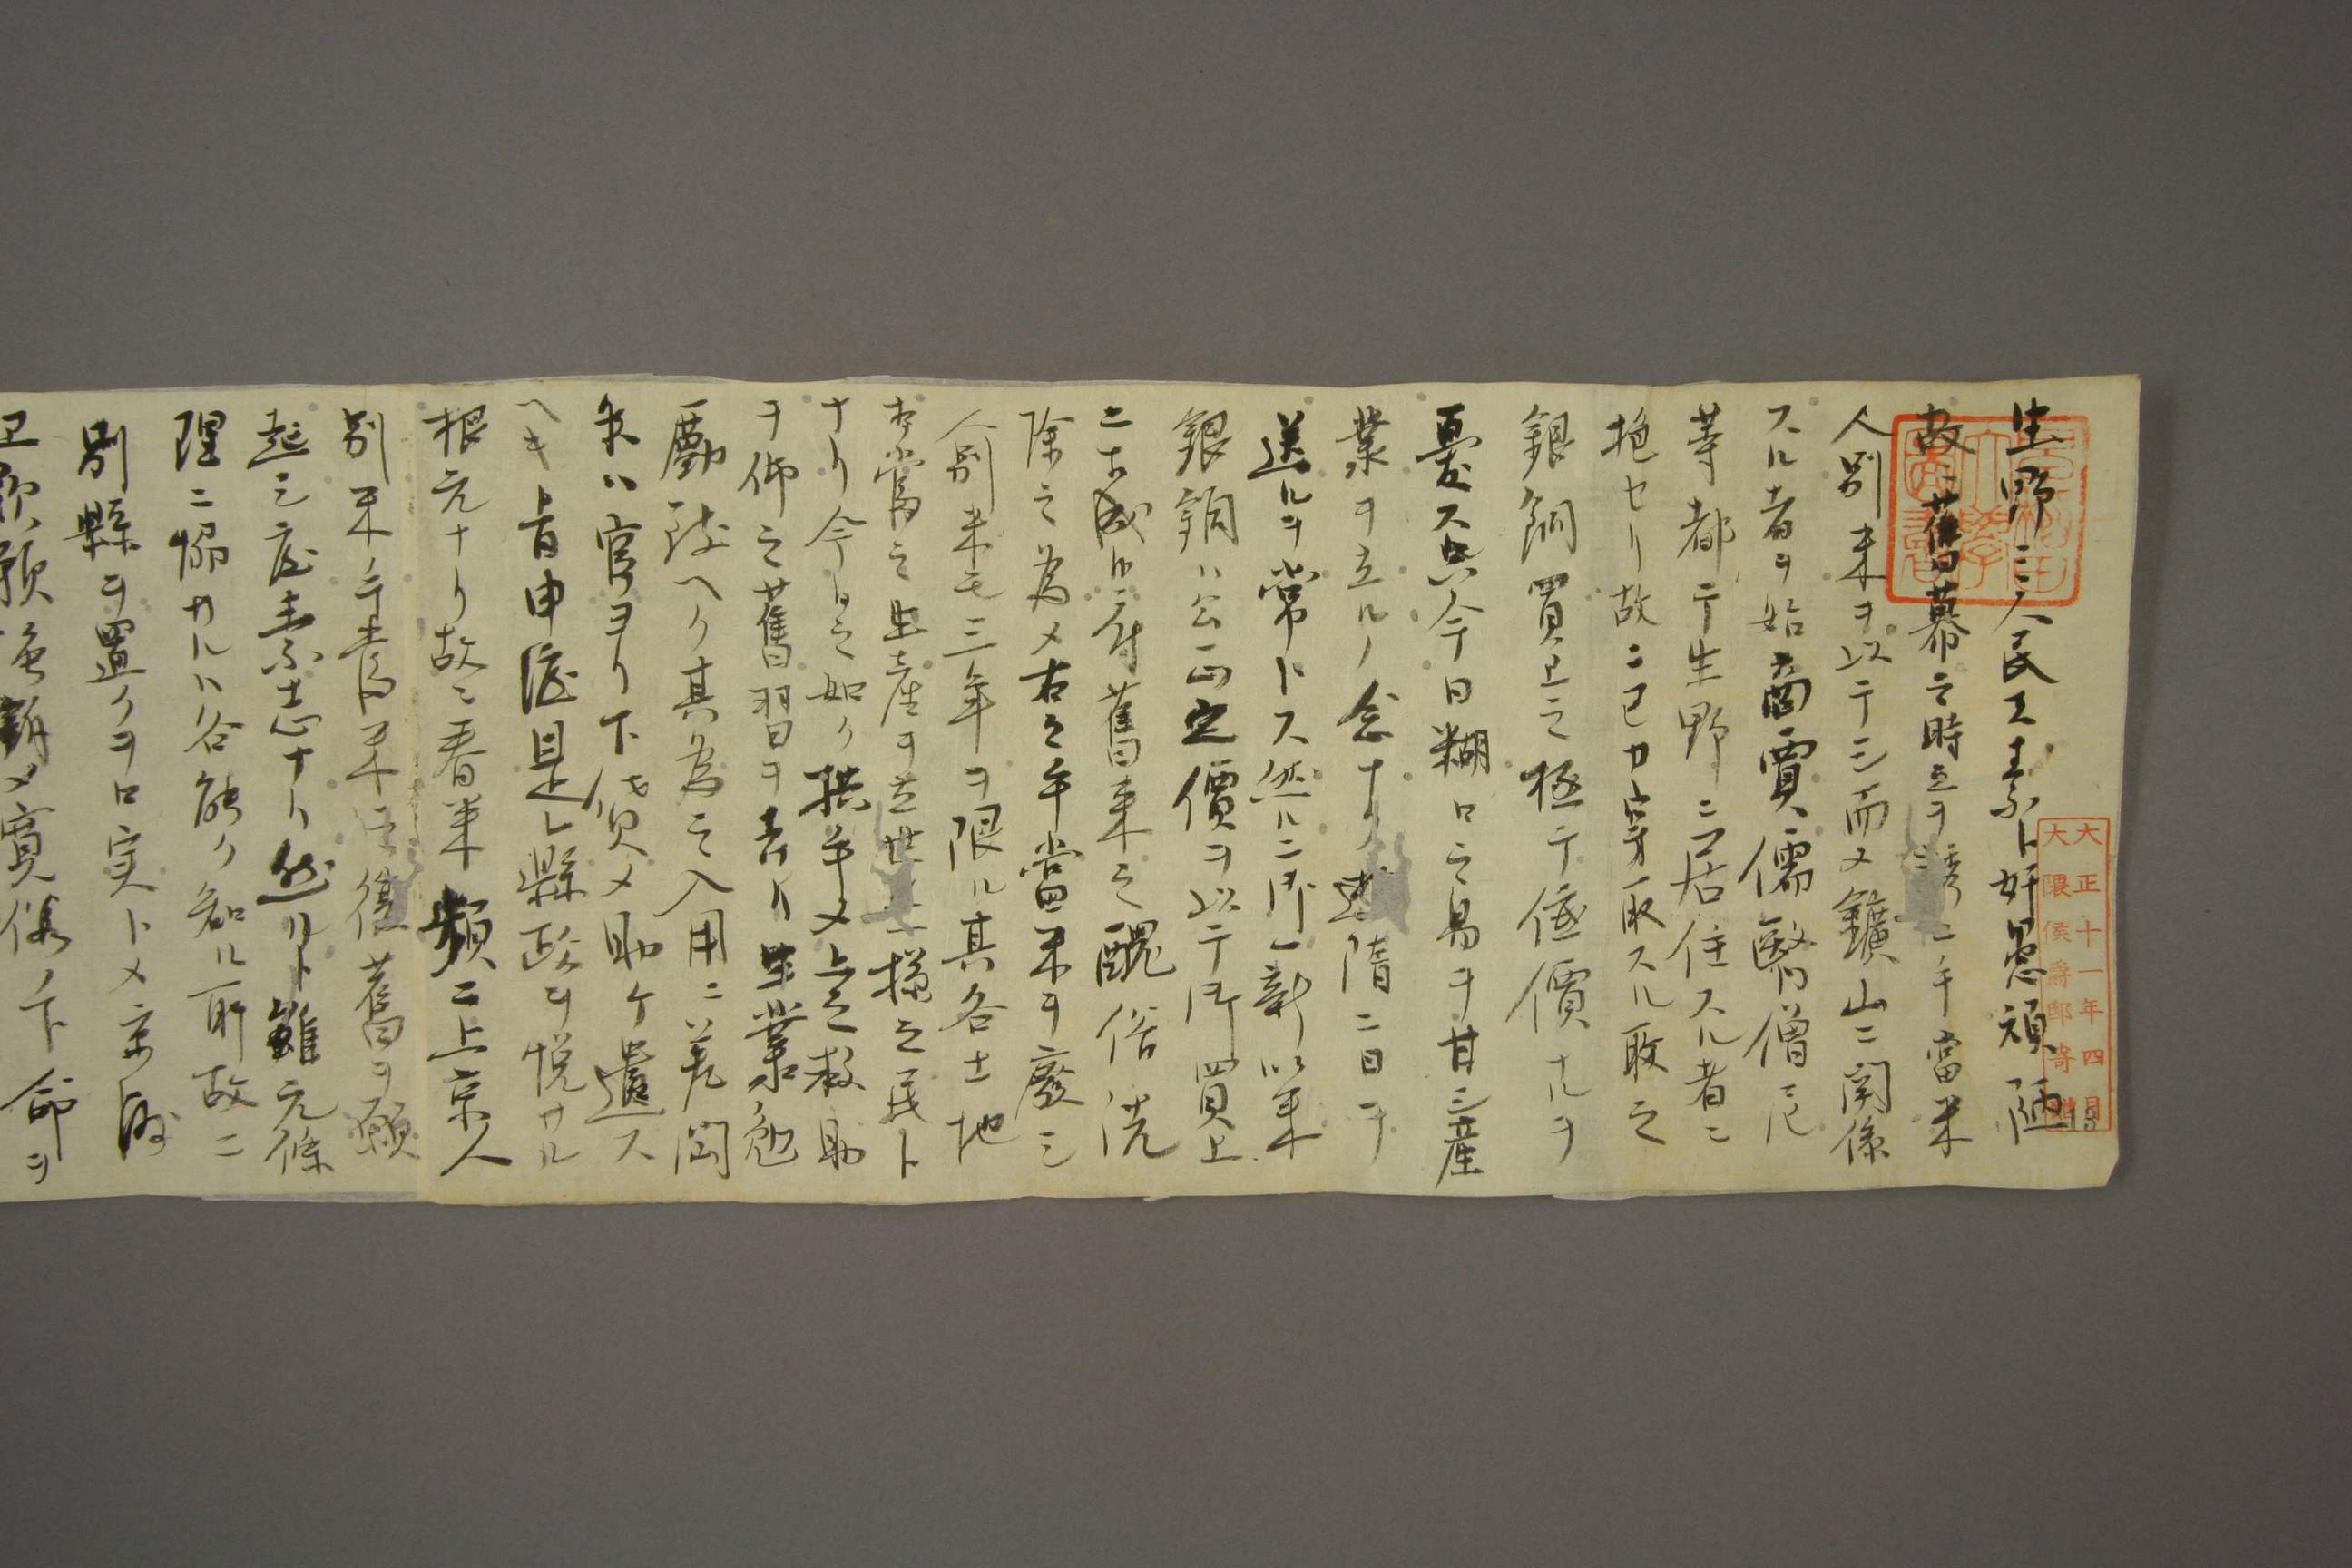 生野之人民又素ト奸愚頑陋
故ニ舊幕之時之ヲ誘ニ手當米
人別米ヲ以テシ而メ鑛山ニ関係
スル者ヲ始商賈儒醫僧尼
等都テ生野ニ居住スル者ニ
抱セリ故ニ己カ穿取スル散之
銀銅買上之極テ低價ナルヲ
憂ス只今日糊口之易ヲ甘シ産
業ヲ立ルノ念ナク 隋ニ日ヲ
送ルヲ常トス然ルニ御一新以来
銀銅ハ公正定價ヲ以テ御買上
ニ相成旧府舊来之醜俗洗
除之為メ右之手當米ヲ廢シ
人別米モ三年ヲ限ル其各土地
相當之生産ヲ立世上一様之民ト
ナリ今日之如ク拱手メ上之救助
ヲ仰之舊習ヲ去リ生業勉
勵致ヘク其為之入用ニ差閊
候ハ官ヨリ下貸メ助ケ遣ス
ヘキ旨申渡是レ縣政ヲ悦サル
根元ナリ故ニ春来頻ニ上京人
別米手當米之復舊ヲ願
起シ之度素志ナリ然ルト雖元條
理ニ協カルハ各能ク知ル所故ニ
別縣ヲ置クヲ口実トメ京師
且歎願強訴メ寛係ノ下命ヲ
大正十一年四月
大隈侯爵邸寄贈